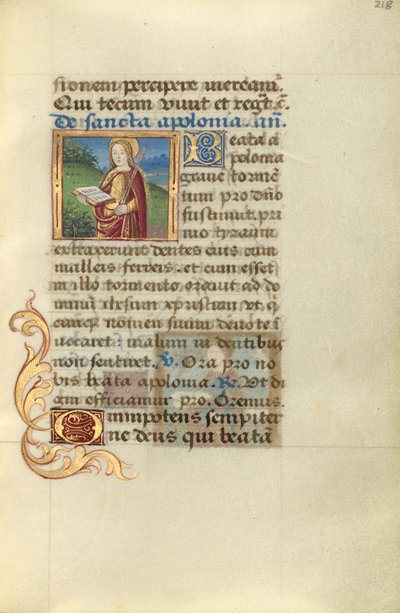 218
sionem percipere mereamᷣ.
Qui tecum viuit et regt̄. c̄.
De sancta apolonia. añ.
Beata a
polonia
graue tormē
tum pro dn̄o
sustinuit, pri
mo tyranni
extraxerunt dentes eius cum
malleis ferreis. et cum esset
in illo tormento orauit ad do
minum ihesum xpristum vt q̇
cumqꝫ nomen suum deuote ī
uocaret: malum in dentibus
non sentiret. ℣. Ora pro no
bis beata apolonia. ℟. Vt di
gni efficiamur pro. Oremus.
Omnipotens sempiter
ne deus qui beatā